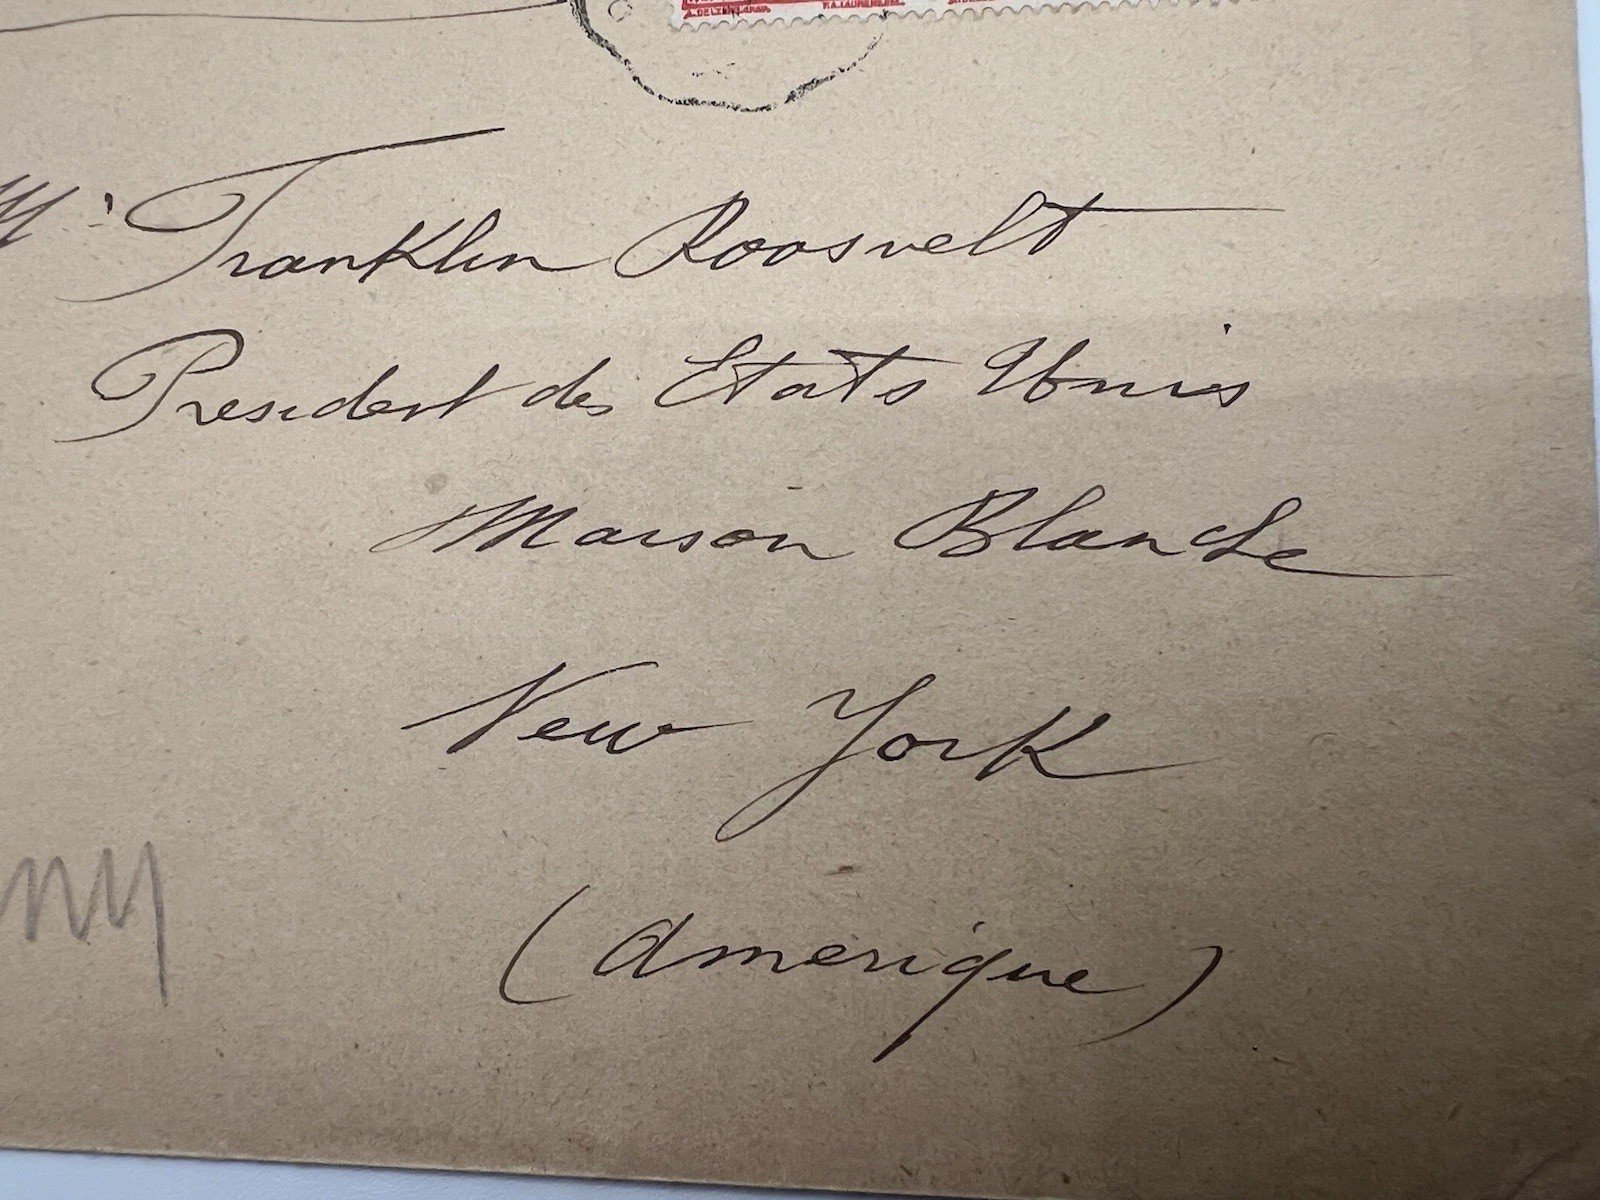 Mr Franklin Roosvelt
President des Etats Unis
Maison Blanche
New York
(Amerique)
NY